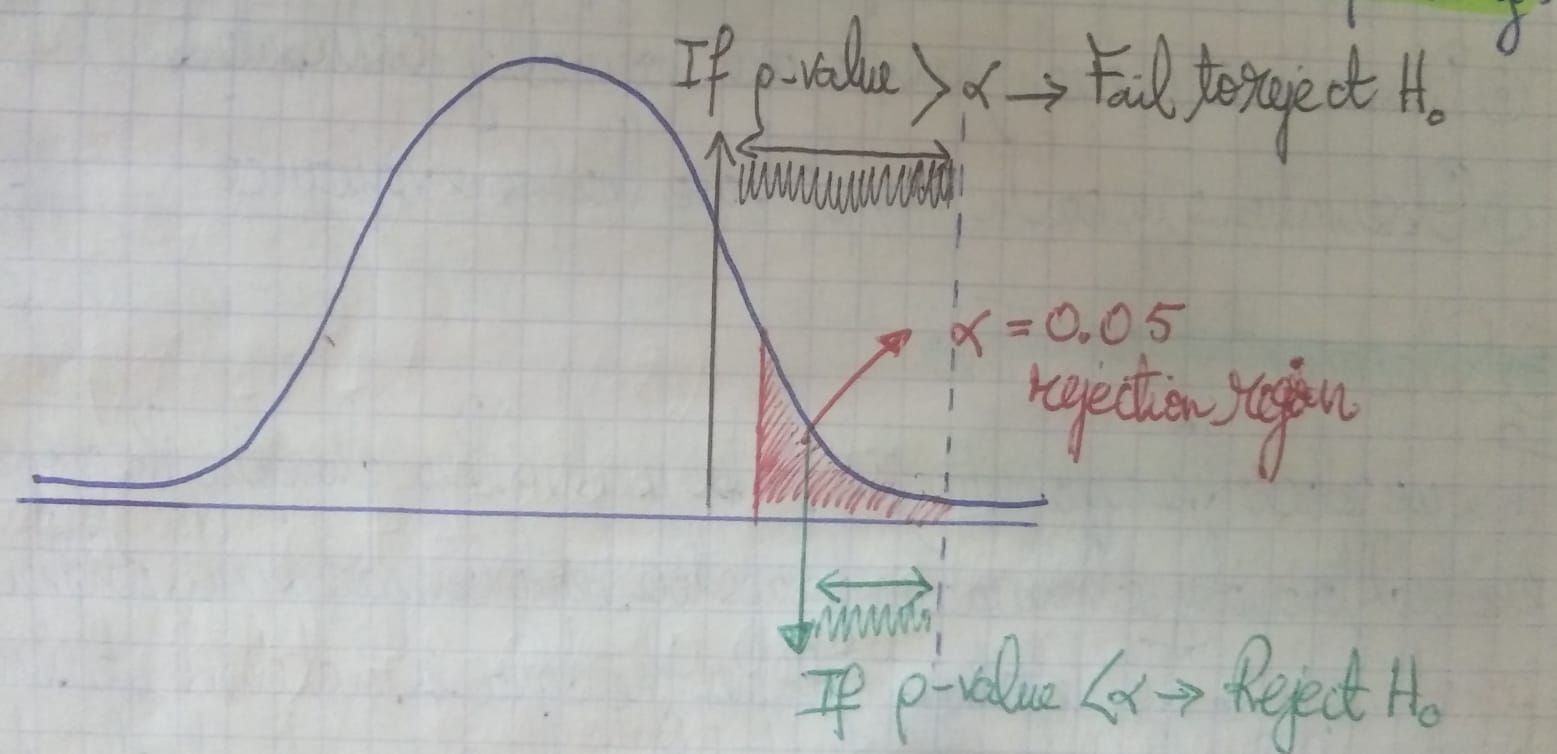 If p-value > α → Fail to reject H₀
α = 0.05
rejection region
If p-value < α → Reject H₀